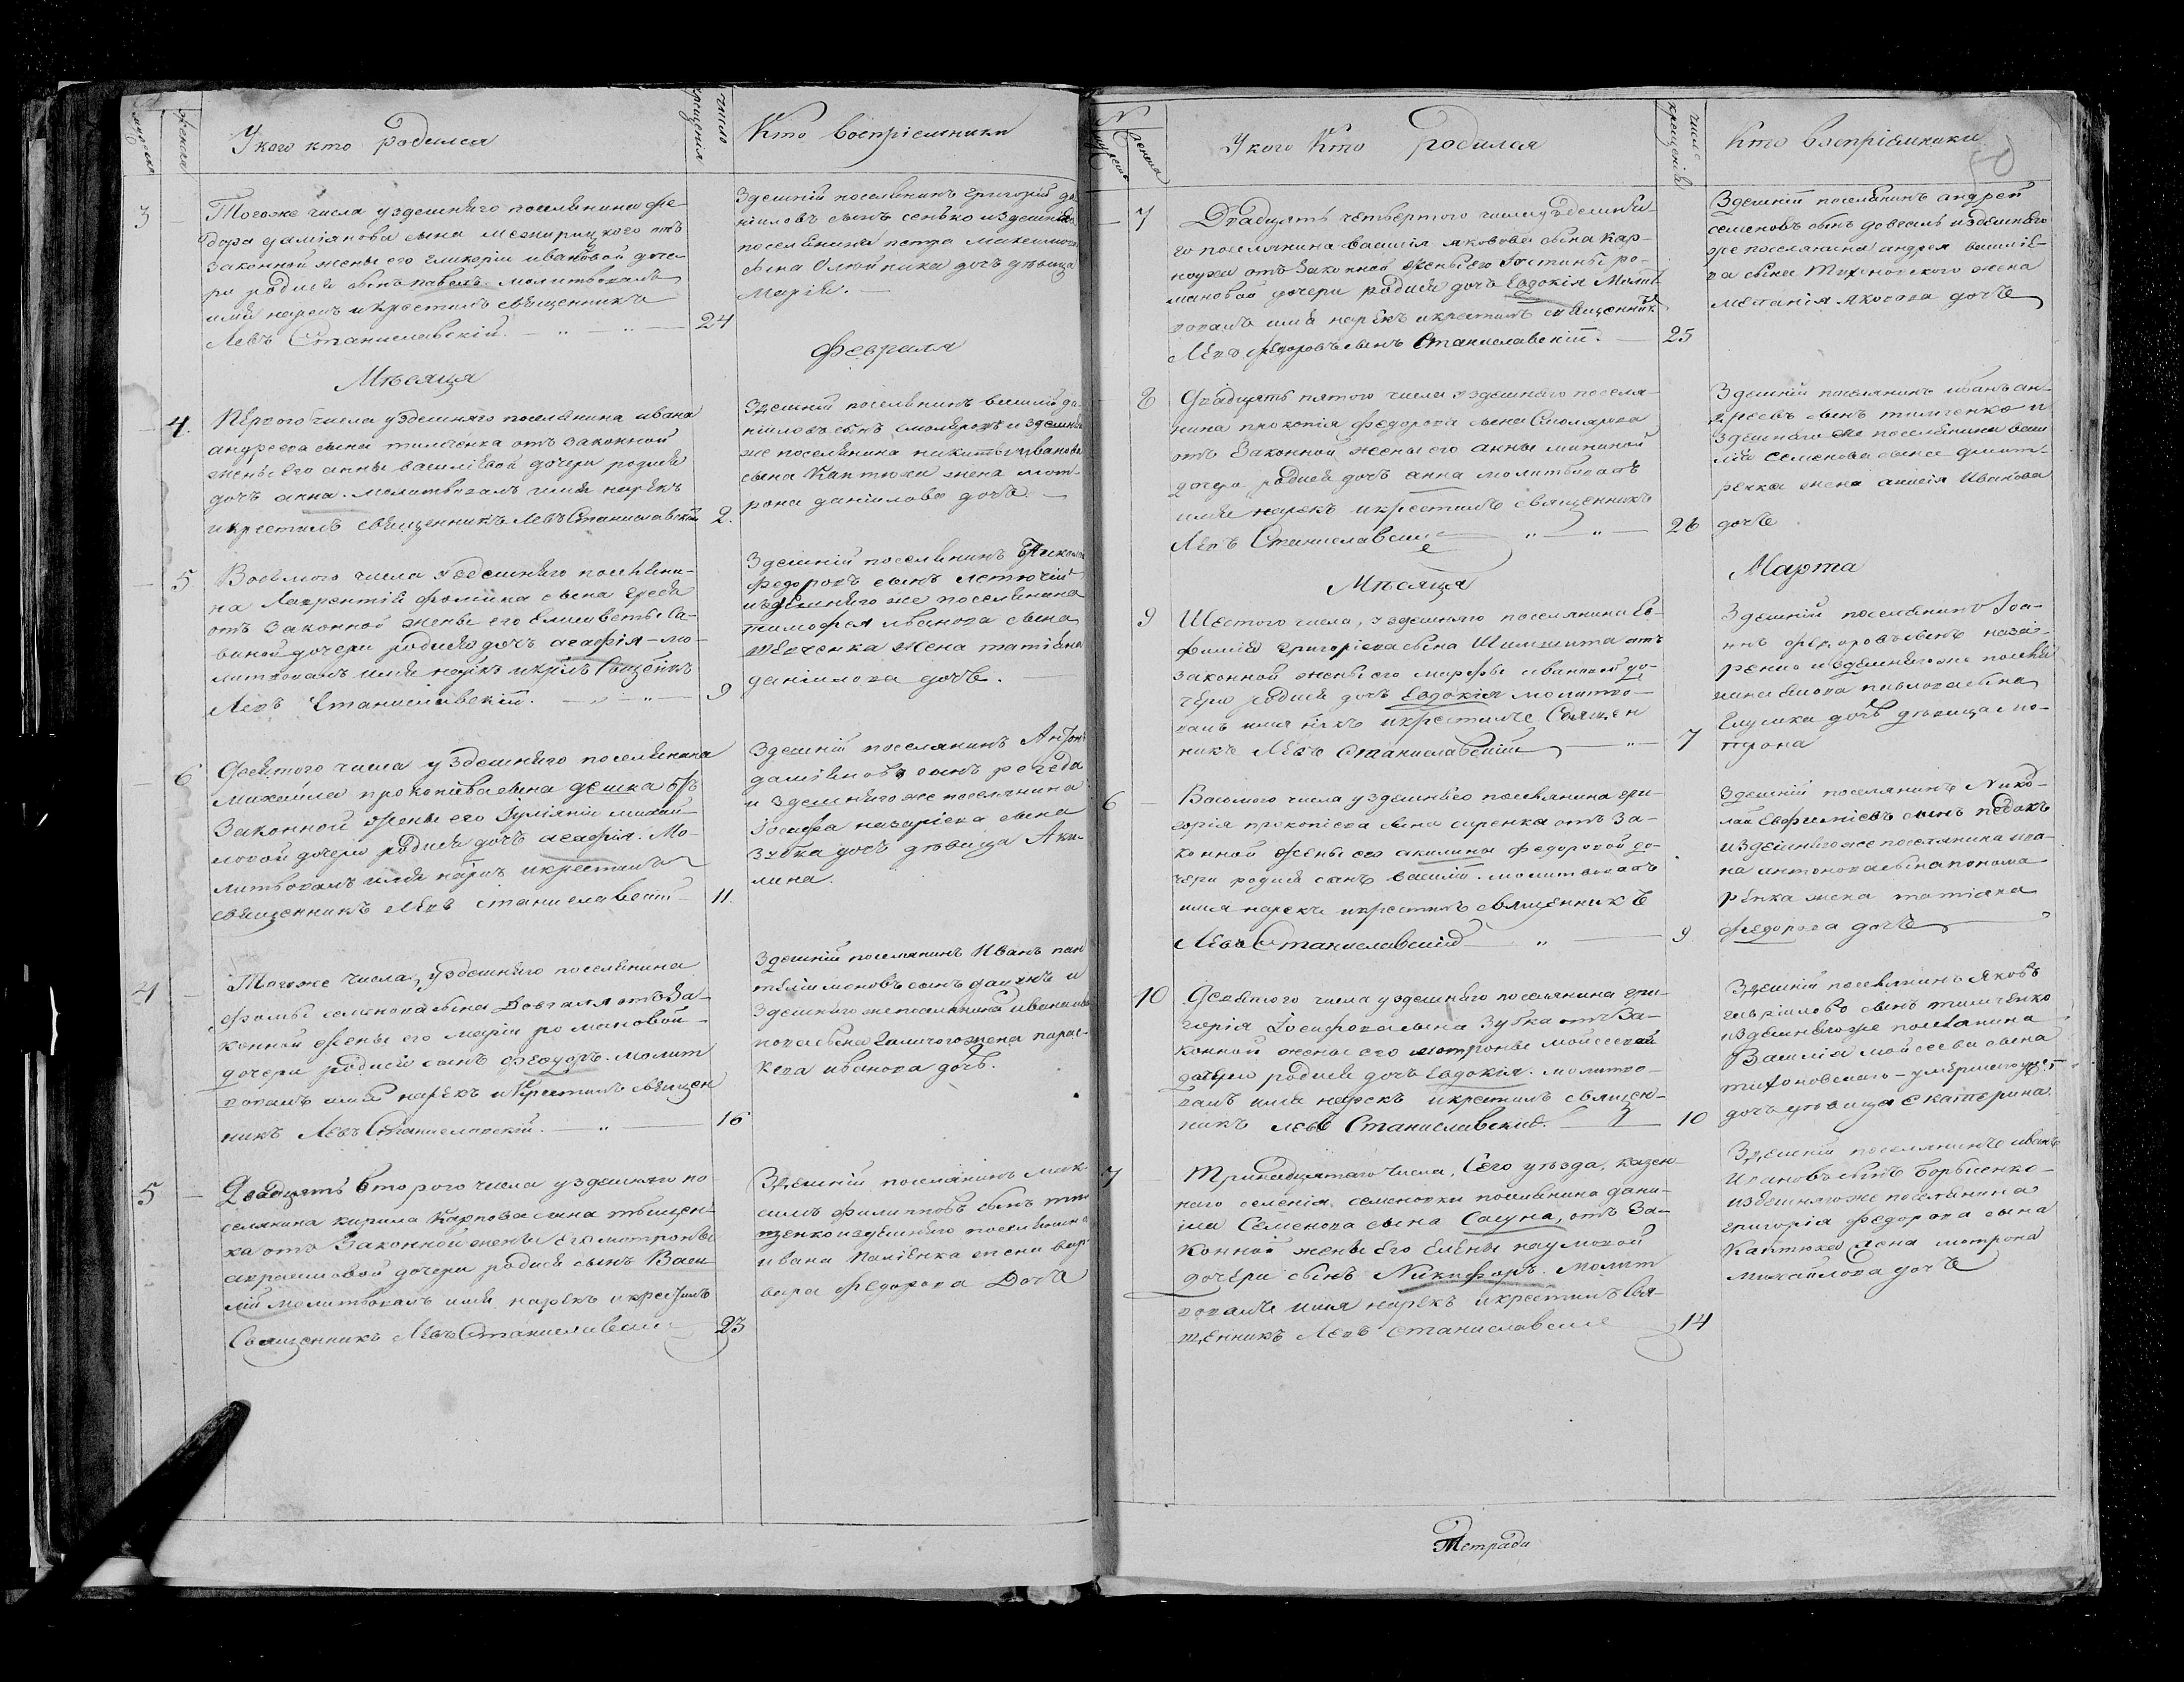 мужеска
женска
У кого кто родился
число крещенія
Кто воспріемники
3
Тогоже числа у здешняго поселянина Фе-
дора даміянова сына Межирицкого отъ
законной жены его гликеріи ивановой доче-
ри родися сынъ павелъ молитвовалъ
имя нарекъ и крестилъ священникъ
Левъ Станиславскій.
24
Здешній поселянинъ григорій да-
ніиловъ сынъ сенько и здешняго
поселянина петра
сына Олюйника дочь девица
Марія.
Мѣсяца
Февраля
4.
Первого числа у здешняго поселянина ивана
андреева сына тимченка отъ законной
жены его анны василіевой дочери родися
дочь анна. молитвовалъ имя нарекъ
и крестилъ священникъ Левъ Станиславскій
2.
Здешній поселянинъ василій да-
ніиловъ сынъ и здешняго
же поселянина никиты иванова
сына Каптюхи жена мот-
рона даніилова дочь.
5
Восьмого числа у здешняго поселяни-
на Лаврентія Фомина сына
отъ законной жены его Елисаветы Са-
виной дочери родися дочь агафія - мо-
литвовалъ имя
Левъ Станиславскій.
9
Здешній поселянинъ Николай
Федоровъ сынъ
и здешняго же поселянина
тимофея иванова сына
жена татіяна
даніилова дочь.
6
Девятого числа у здешняго поселянина
Михайла прокопіева сына дешка отъ
Законной жены его Іуліяніи михай-
ловой дочери родися дочь агафія. Мо-
литвовалъ имя нарекъ и крестилъ
священникъ Левъ станиславскій
11.
Здешній поселянинъ Антонъ
даміяновъ сынъ регеда
и здешняго же поселянина
Іосифа назаріева сына
Зубка дочь девица Аки-
лина.
4
Тогоже числа, у здешняго поселянина
Фомы семенова сына Довгаля отъ За-
конной жены его Маріи романовой
дочери родися сынъ феодоръ. молит
вовалъ имя нарекъ и крестилъ священ
никъ Левъ Станиславскій.
16
Здешній поселянинъ Иванъ пан
телимоновъ сынъ и
Здешняго же поселянина ивана ива
нова сына Галичого жена парас-
кева иванова дочь.
5
Двадцять второго числа у здешняго по
селянина кирила Карпова сына тыщен-
ка отъ Законной жены его мотроны
родися сынъ Васи
лій молитвовалъ имя нарекъ и крестилъ
Священникъ Левъ Станиславскій
23
Здешній поселянинъ Мак
симъ филиповъ сынъ
и здешняго поселянина
ивана
вара федорова Дочь
N
женска
У кого Кто Родился
число крещенія
Кто воспріемники
7
Двадцять четвертого числа у здешня
го поселянина василія яковова сына Кар-
наухи отъ Законной жены его Іюстины ро-
мановой дочери родися дочь Евдокія Молит
вовалъ имя нарекъ и крестилъ священникъ
Левъ федоровъ сынъ Станиславскій.
25
Здешній поселянинъ андрей
семеновъ сынъ довгаль и здешняго
же поселянина андрея василіе-
ва сына Тихоновского жена
меланія яковова дочь
8
Двадцять пятого числа у здешняго поселя-
нина прокопія федорова сына Столярова
отъ Законной жены его анны мининой
дочери родися дочь анна молитвовалъ
имя нарекъ и крестилъ священникъ
Левъ Станиславскій
26
Здешній поселянинъ иванъ ан-
дреевъ сынъ тимченко и
здешняго же поселянина васи
лія семенова сына дмит-
ренка жена анисія Иванова
дочь
Мѣсяца
Марта
9
Шестого числа, у здешняго поселянина Ев-
фимія григоріева сына отъ
законной жены его марфы ивановой до-
чери родися дочь Евдокія молитво-
валъ имя и крестилъ Священ
никъ Левъ Станиславскій
7
Здешній поселянинъ Іоа-
ннъ федоровъ сынъ наза-
ренко и здешняго же поселя
нина павлова сына
дочь девица мо-
трона
6
Восьмого числа у здешняго поселянина гри-
горія прокопіева сына сиренка отъ За-
конной жены его акилины федоровой до-
чери родися сынъ василій. молитвовалъ
имя нарекъ и крестилъ священникъ
Левъ Станиславскій
9
Здешній поселянинъ Нико-
лай Евфиміевъ сынъ
и здешняго же поселянина ива-
на антонова сына понома
ренка жена татіяна
федорова дочь
10
Девятого числа у здешняго поселянина гри-
горія Іосифова сына Зубка отъ За-
конной жены его мотроны мойсеевой
дочери родися дочь Евдокія. молитво-
валъ имя нарекъ и крестилъ священ-
никъ левъ Станиславскій.
10
Здешній поселянинъ Яковъ
гавріиловъ сынъ тимченко
и здешняго же поселянина
Василія мойсеева сына
тихоновского - умершого
дочь девица Екатерина.
7
Тринадцятаго числа, Сего уезда, казен-
наго селенія семеновки поселянина дани-
ила Семенова сына Сагуна, отъ За-
конной жены Его Елены наумовой
дочери сынъ Никифоръ. Молит
вовалъ имя нарекъ и крестилъ Свя-
щенникъ Левъ Станиславскій
14
Здешній поселянинъ иванъ
Ивановъ сынъ борысенко
и здешняго же поселянина
григорія федорова сына
Каптюхи жена мотрона
михайлова дочь
Тетради